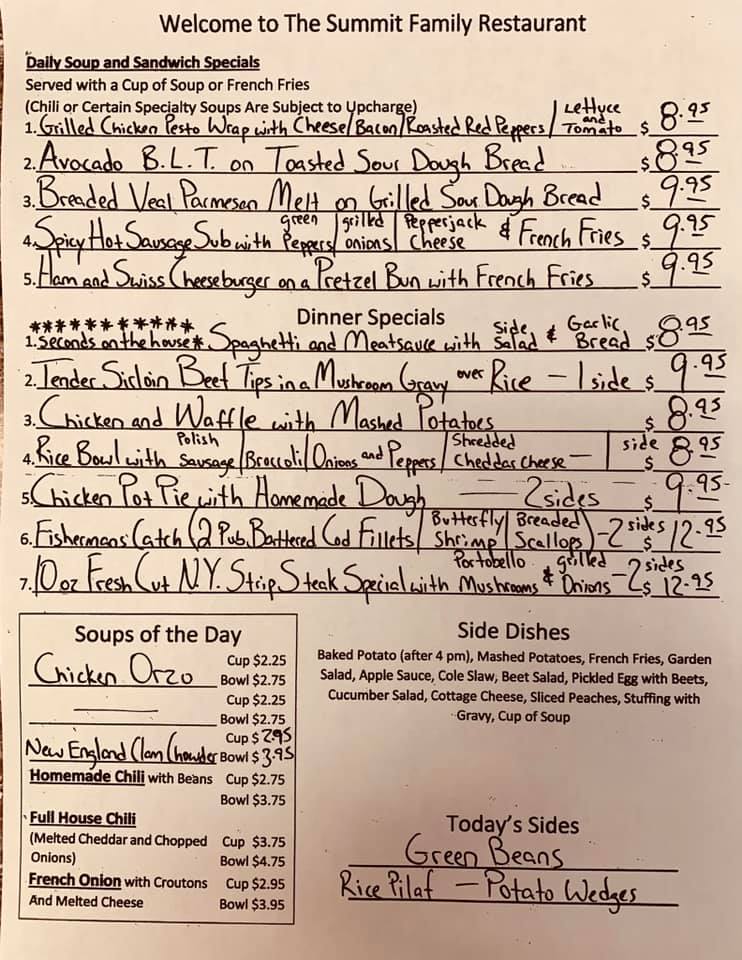 Welcome to The Summit Family Restaurant
Daily Soup and Sandwich Specials
Served with a Cup of Soup or French Fries
(Chili or Certain Specialty Soups Are Subject to Upcharge)
1. Grilled Chicken Pesto Wrap with Cheese/Bacon/Roasted Red Peppers/Lettuce and Tomato $ 8.95
2. Avocado B.L.T. on Toasted Sour Dough Bread $ 8.95
3. Breaded Veal Parmesan Melt on Grilled Sour Dough Bread $ 9.95
4. Spicy Hot Sausage Sub with green Peppers/grilled onions/Pepperjack Cheese & French Fries $ 9.95
5. Ham and Swiss Cheeseburger on a Pretzel Bun with French Fries $ 9.95
Dinner Specials
**********
1. Seconds on the house* Spaghetti and Meatsauce with Side Salad & Garlic Bread $ 8.95
2. Tender Sirloin Beef Tips in a Mushroom Gravy over Rice — 1 side $ 9.95
3. Chicken and Waffle with Mashed Potatoes $ 8.95
4. Rice Bowl with Polish Sausage/Broccoli/Onions and Peppers/Shredded Cheddar Cheese — 1 side $ 8.95
5. Chicken Pot Pie with Homemade Dough — 2 sides $ 9.95
6. Fishermans Catch (2 Pub Battered Cod Fillets/Butterfly Shrimp/Breaded Scallops) - 2 sides $ 12.95
7. 10 oz Fresh Cut N.Y. Strip Steak Special with Portobello Mushrooms & grilled Onions - 2 sides $ 12.95
Soups of the Day
Chicken Orzo Cup $2.25
Bowl $2.75
Cup $2.25
Bowl $2.75
Cup $ 2.95
New England Clam Chowder Bowl $ 3.95
Homemade Chili with Beans Cup $2.75
Bowl $3.75
Full House Chili
(Melted Cheddar and Chopped Cup $3.75
Onions) Bowl $4.75
French Onion with Croutons Cup $2.95
And Melted Cheese Bowl $3.95
Side Dishes
Baked Potato (after 4 pm), Mashed Potatoes, French Fries, Garden
Salad, Apple Sauce, Cole Slaw, Beet Salad, Pickled Egg with Beets,
Cucumber Salad, Cottage Cheese, Sliced Peaches, Stuffing with
Gravy, Cup of Soup
Today's Sides
Green Beans
Rice Pilaf — Potato Wedges